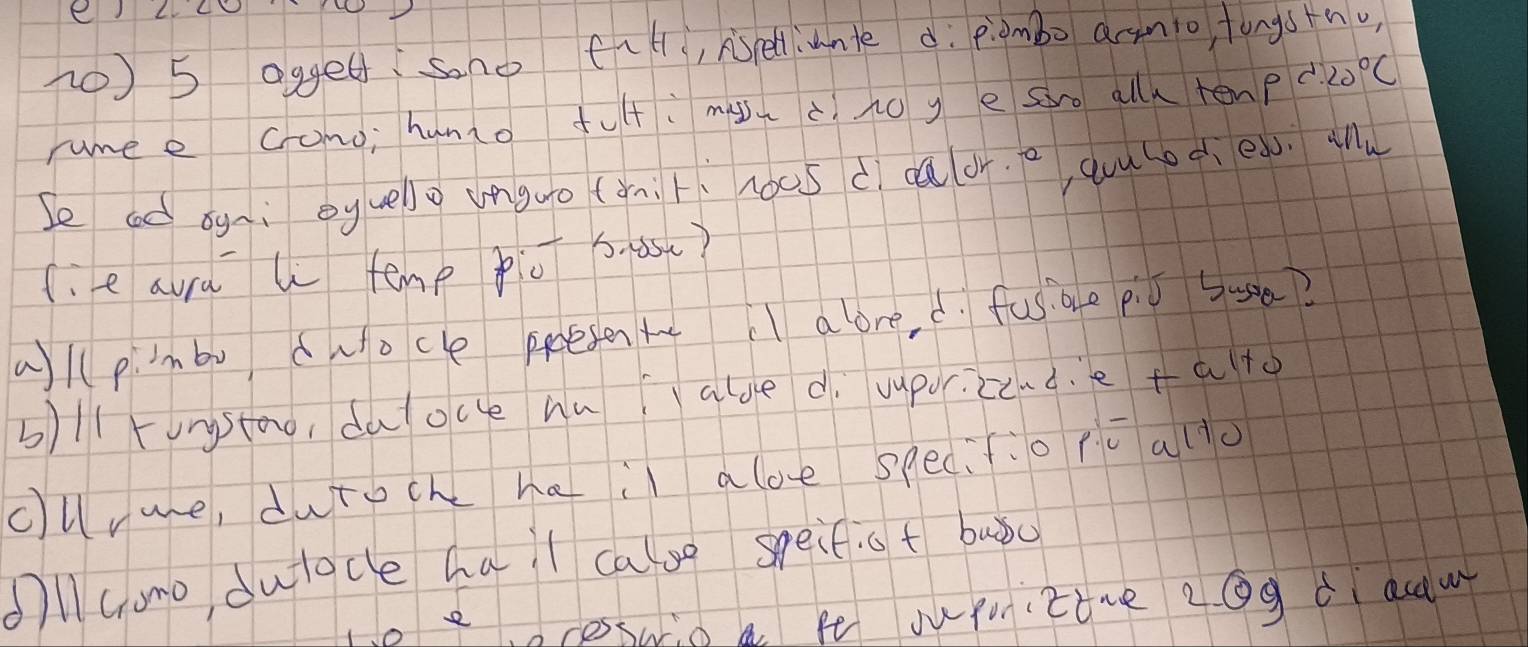 10) 5 oggetti sono fatti, rispettivamente di piombo argento, tungsteno,
rame e cromo; hanno tutti massa di 10 g e sono alla temp di 20°C
Se ad ogni oggetto vengono forniti 100 J di calore, quale di essi alla
fine avrà la temp più bassa?
a) Il piombo, dato che presenta il calore di fusione più basso?
b) Il tungsteno, dato che ha il calore di vaporizzazione + alto
c) Il rame, dato che ha il calore specifico più alto
d) Il cromo, dato che ha il calore specifico + basso
per vaporizzare 2.0g di acqua